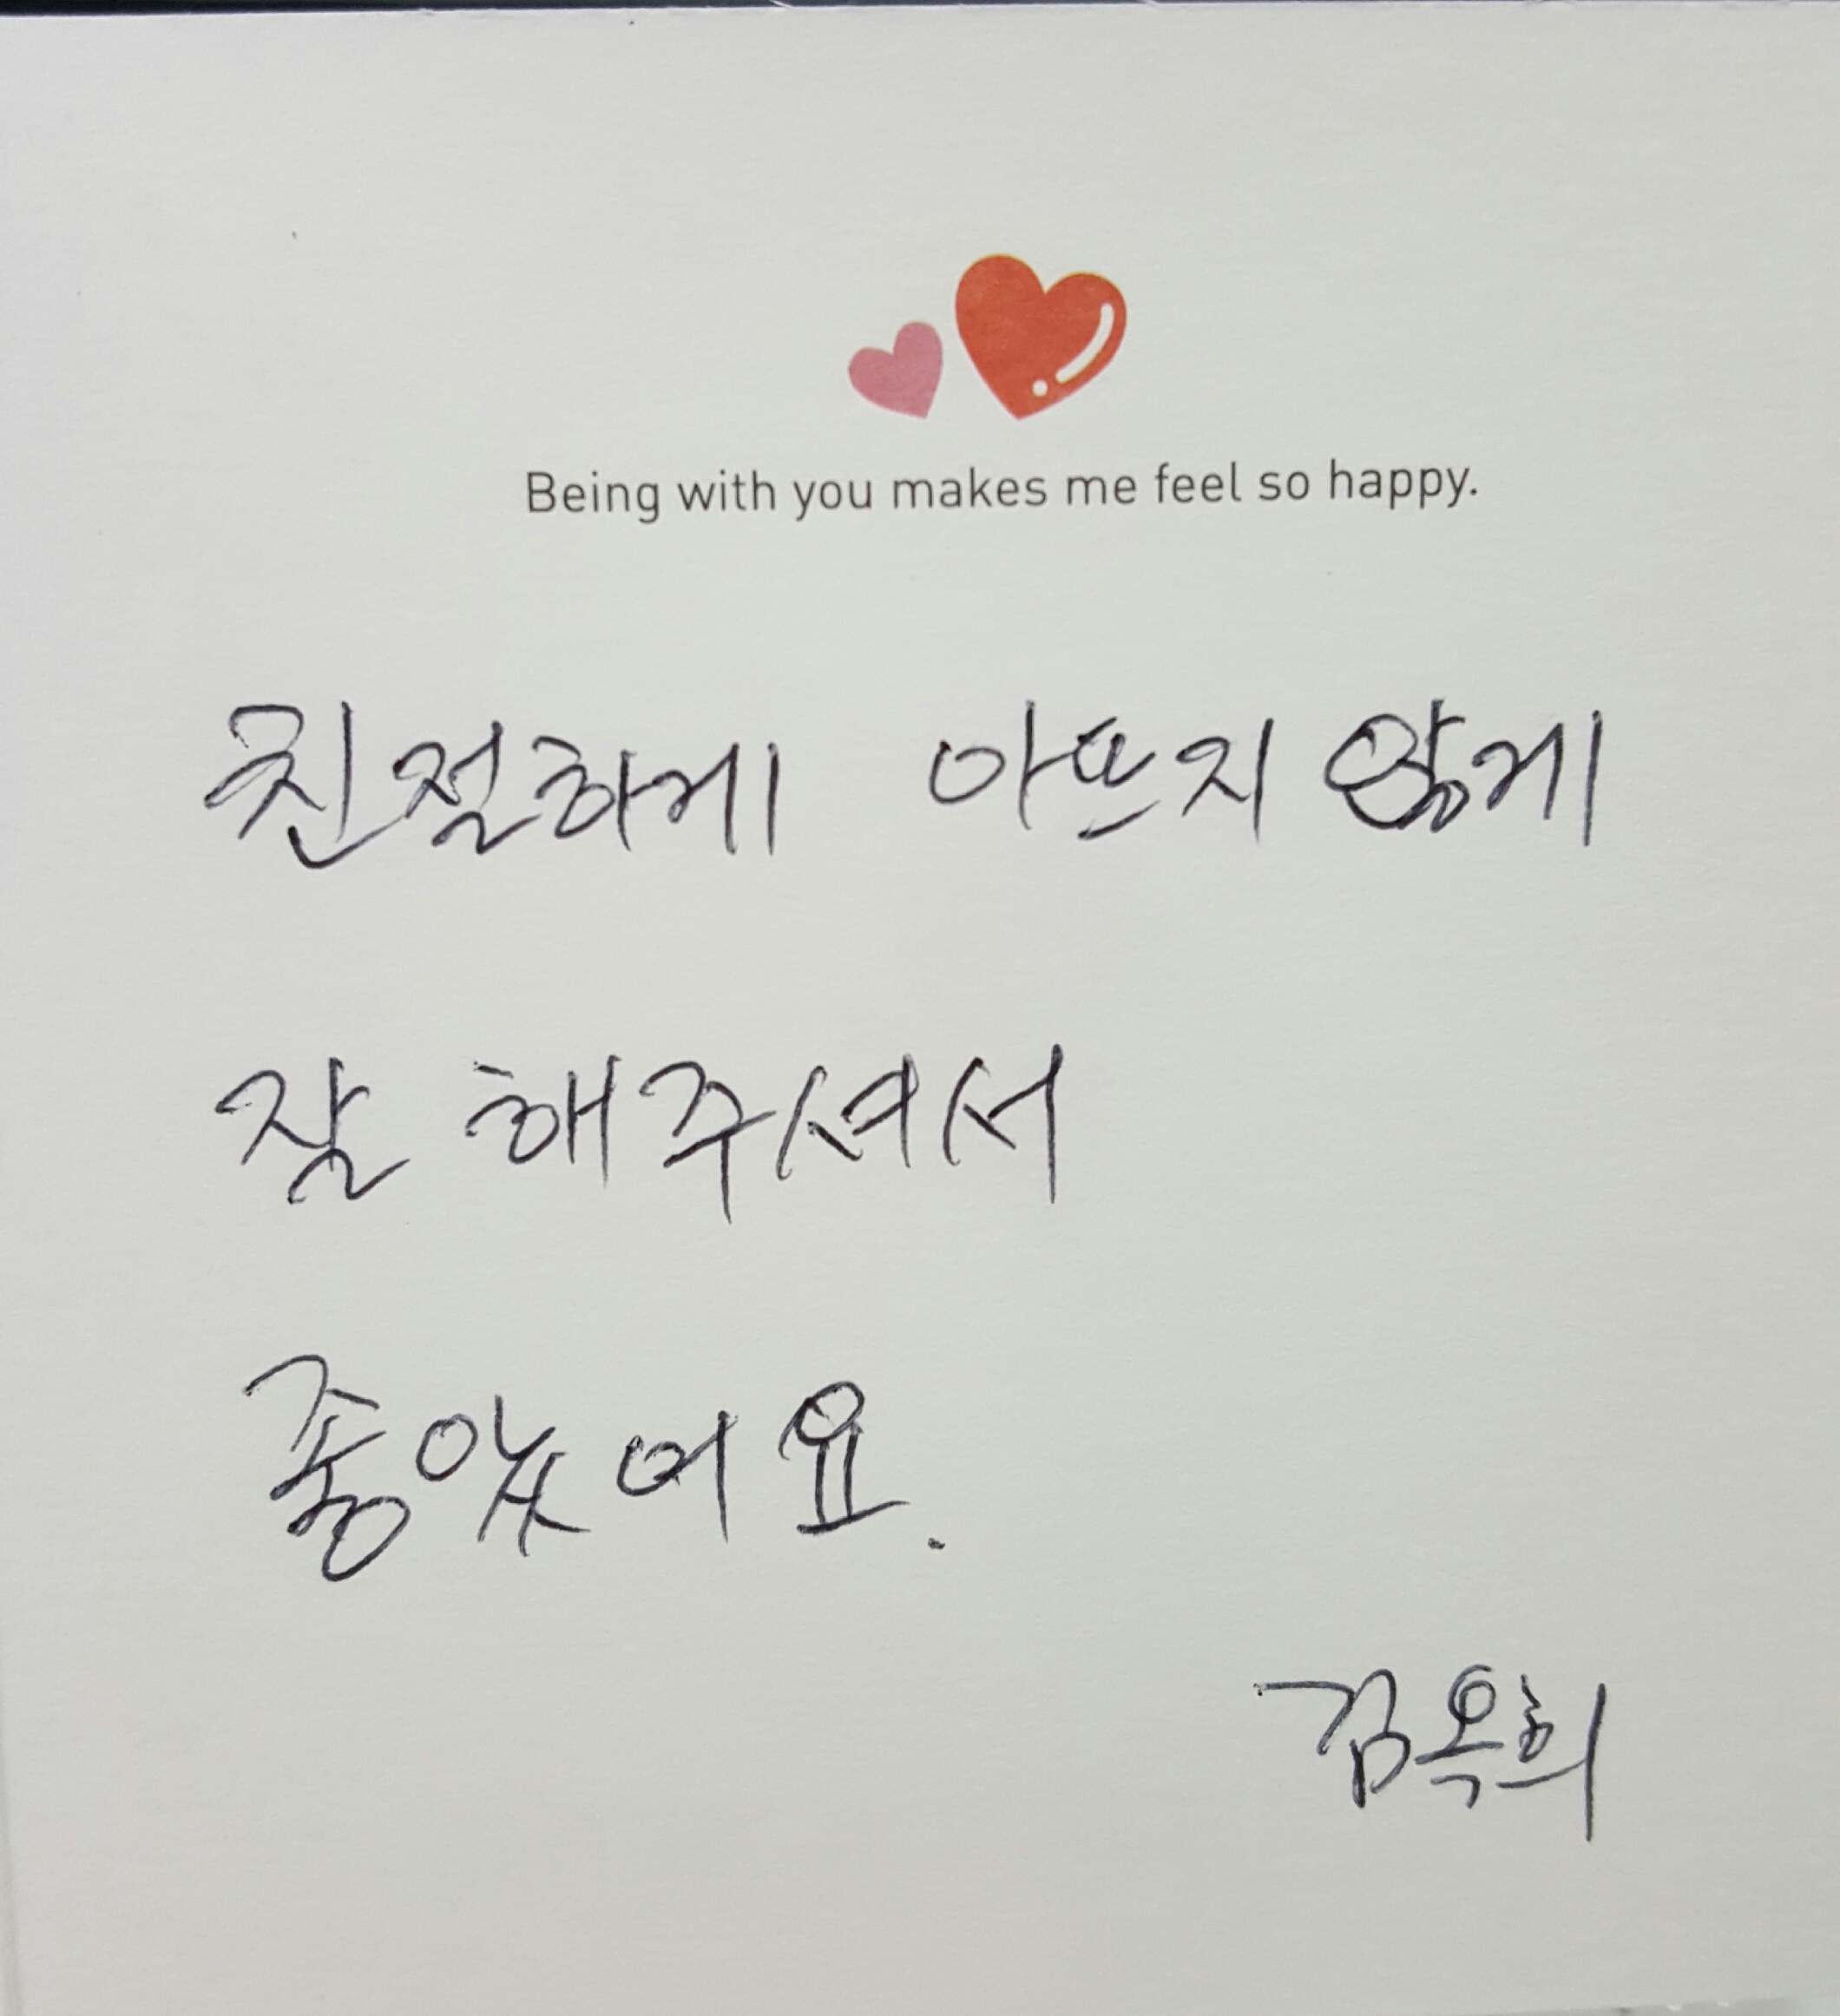 Being with you makes me feel so happy.
친절하게 아프지 않게
잘 해주셔서
좋았어요.
김옥희